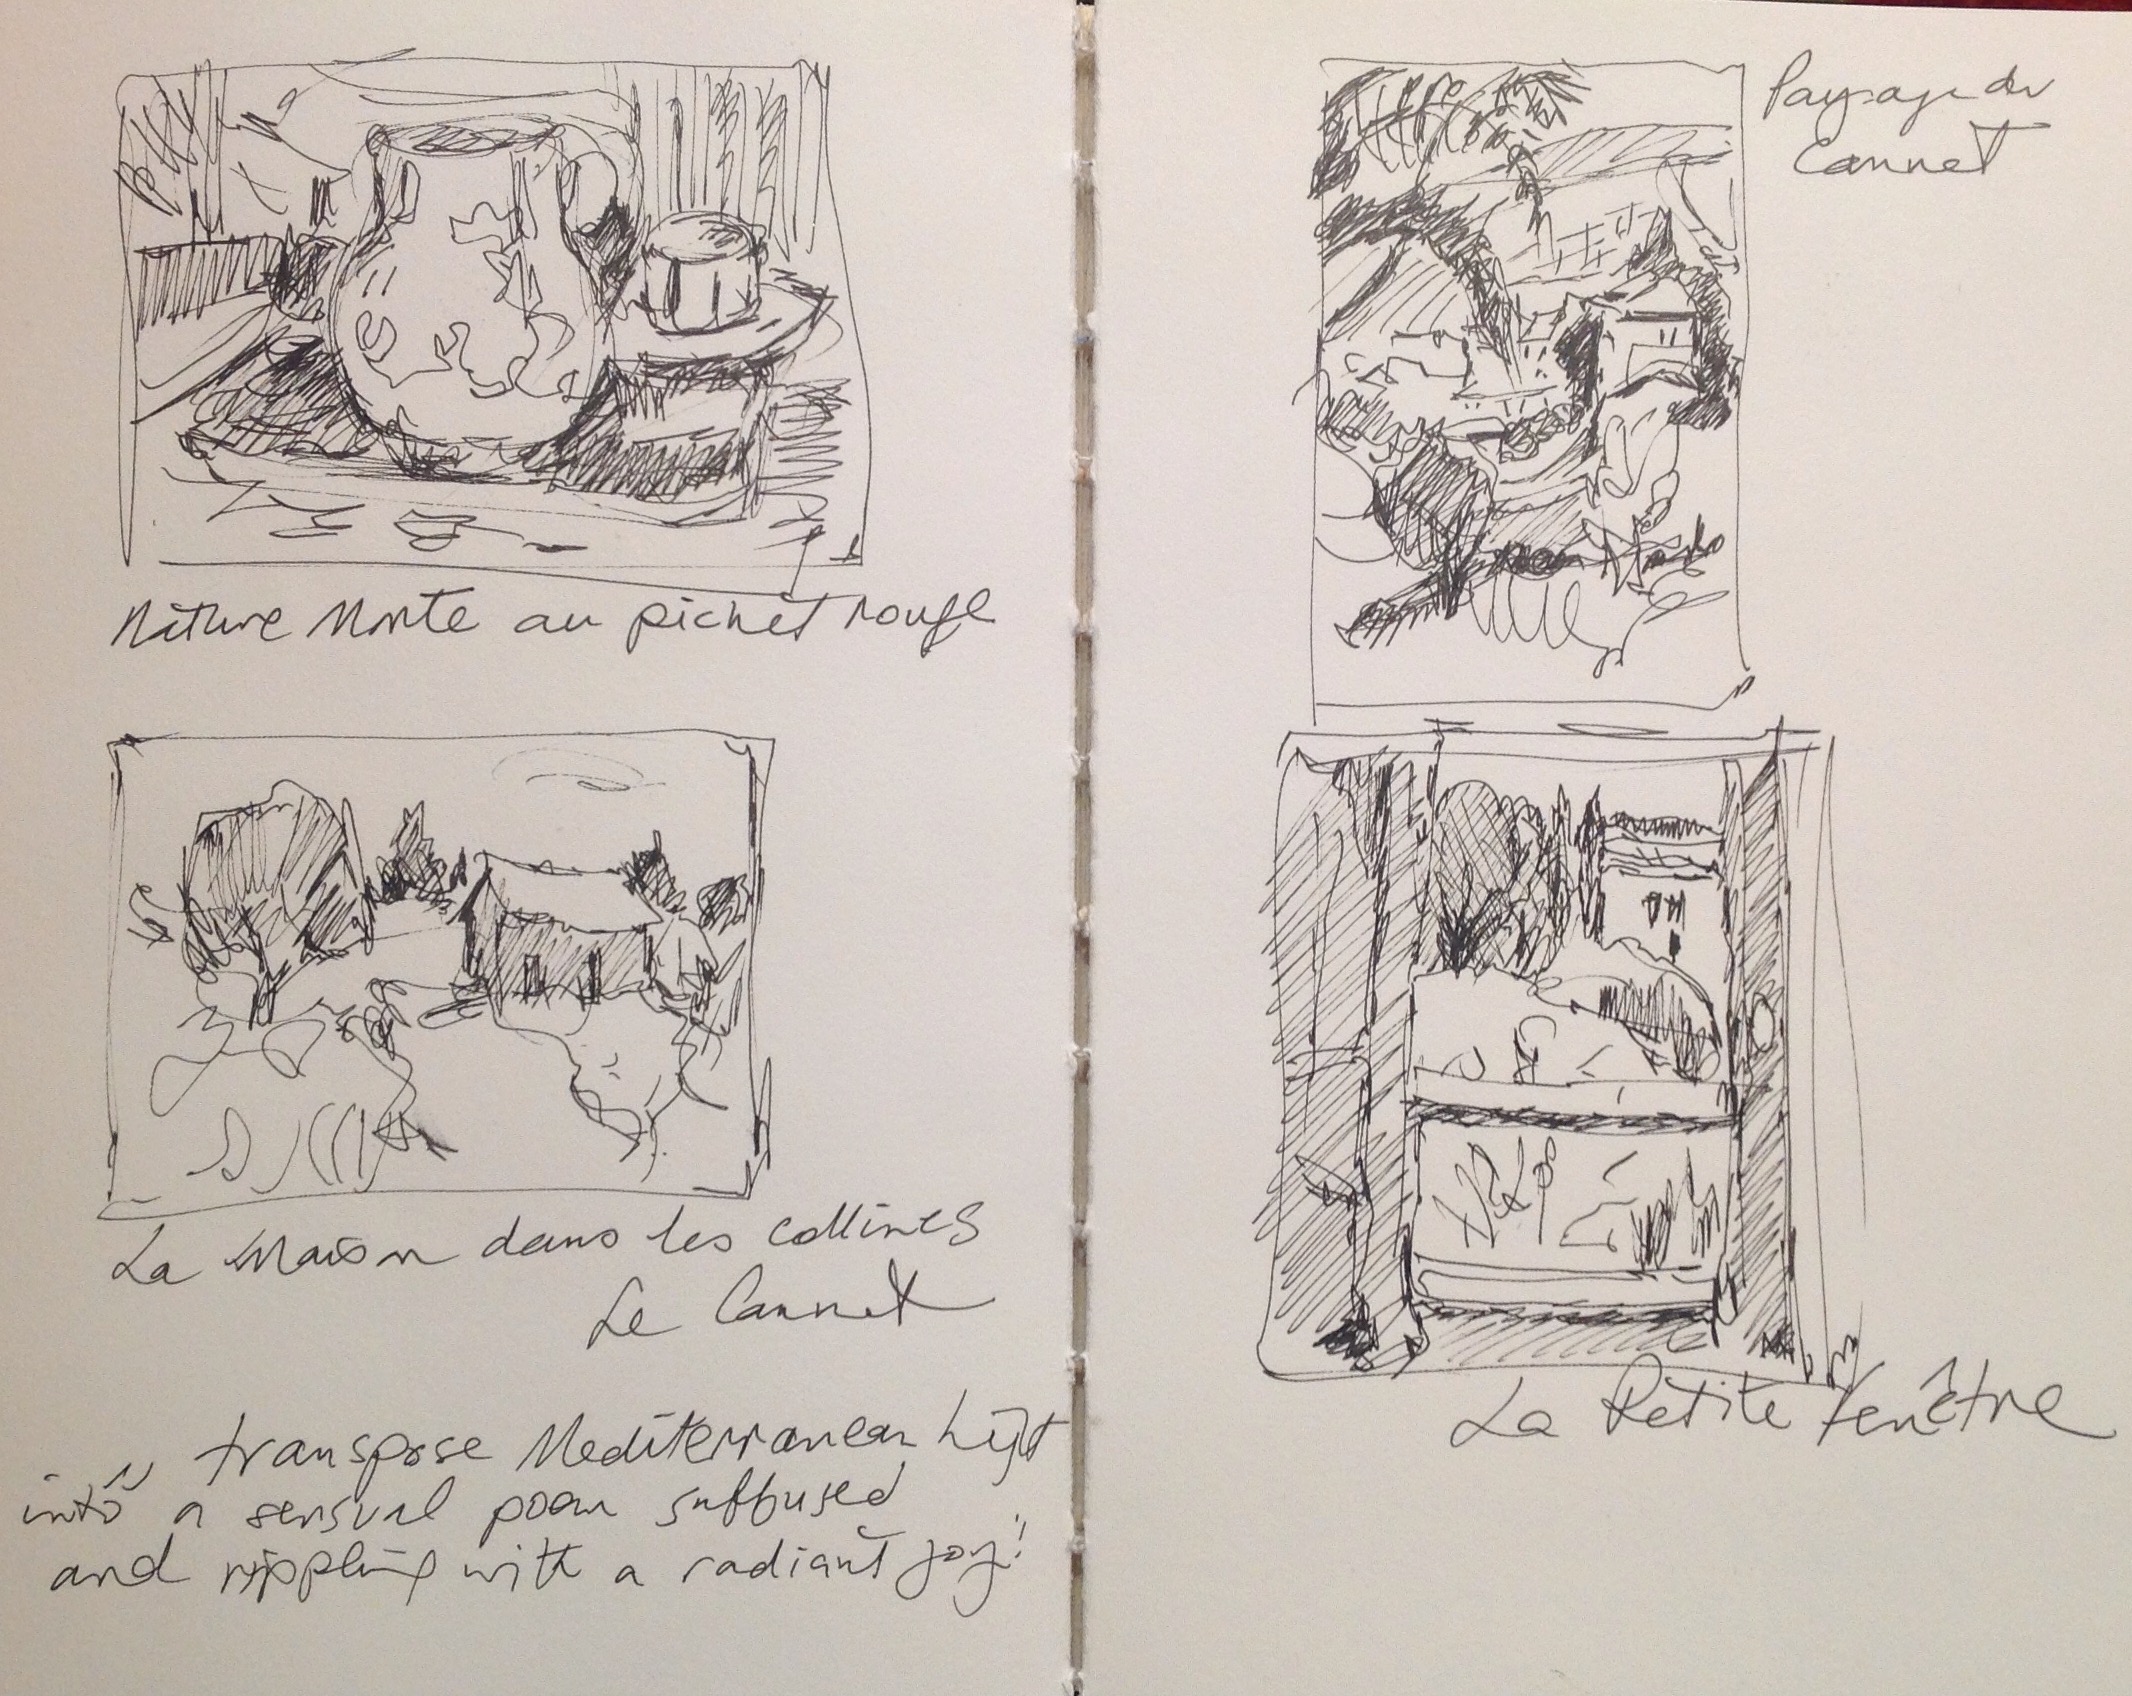 Nature Morte au pichet rouge
La Maison dans les collines
Le Cannet
transpose Mediterranean Light
into a sensual poem suffused
and rippling with a radiant joy!
Paysage du
Cannet
La Petite Fenêtre